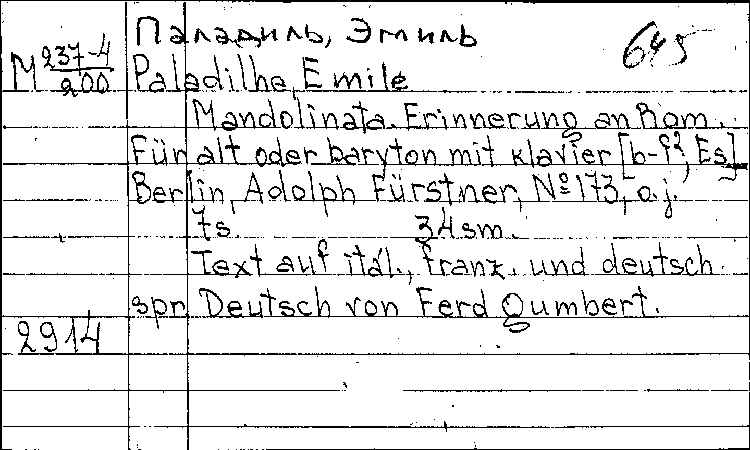 Паладиль, Эмиль 645
М 237-4/200 Paladilhe, Emile
Mandolinata. Erinnerung an Rom.
Für alt oder baryton mit klavier [b-f², Es]
Berlin, Adolph Fürstner, № 173, o.j.
7s. 34sm.
Text auf ital., franz. und deutsch.
spr. Deutsch von Ferd Gumbert.
2914